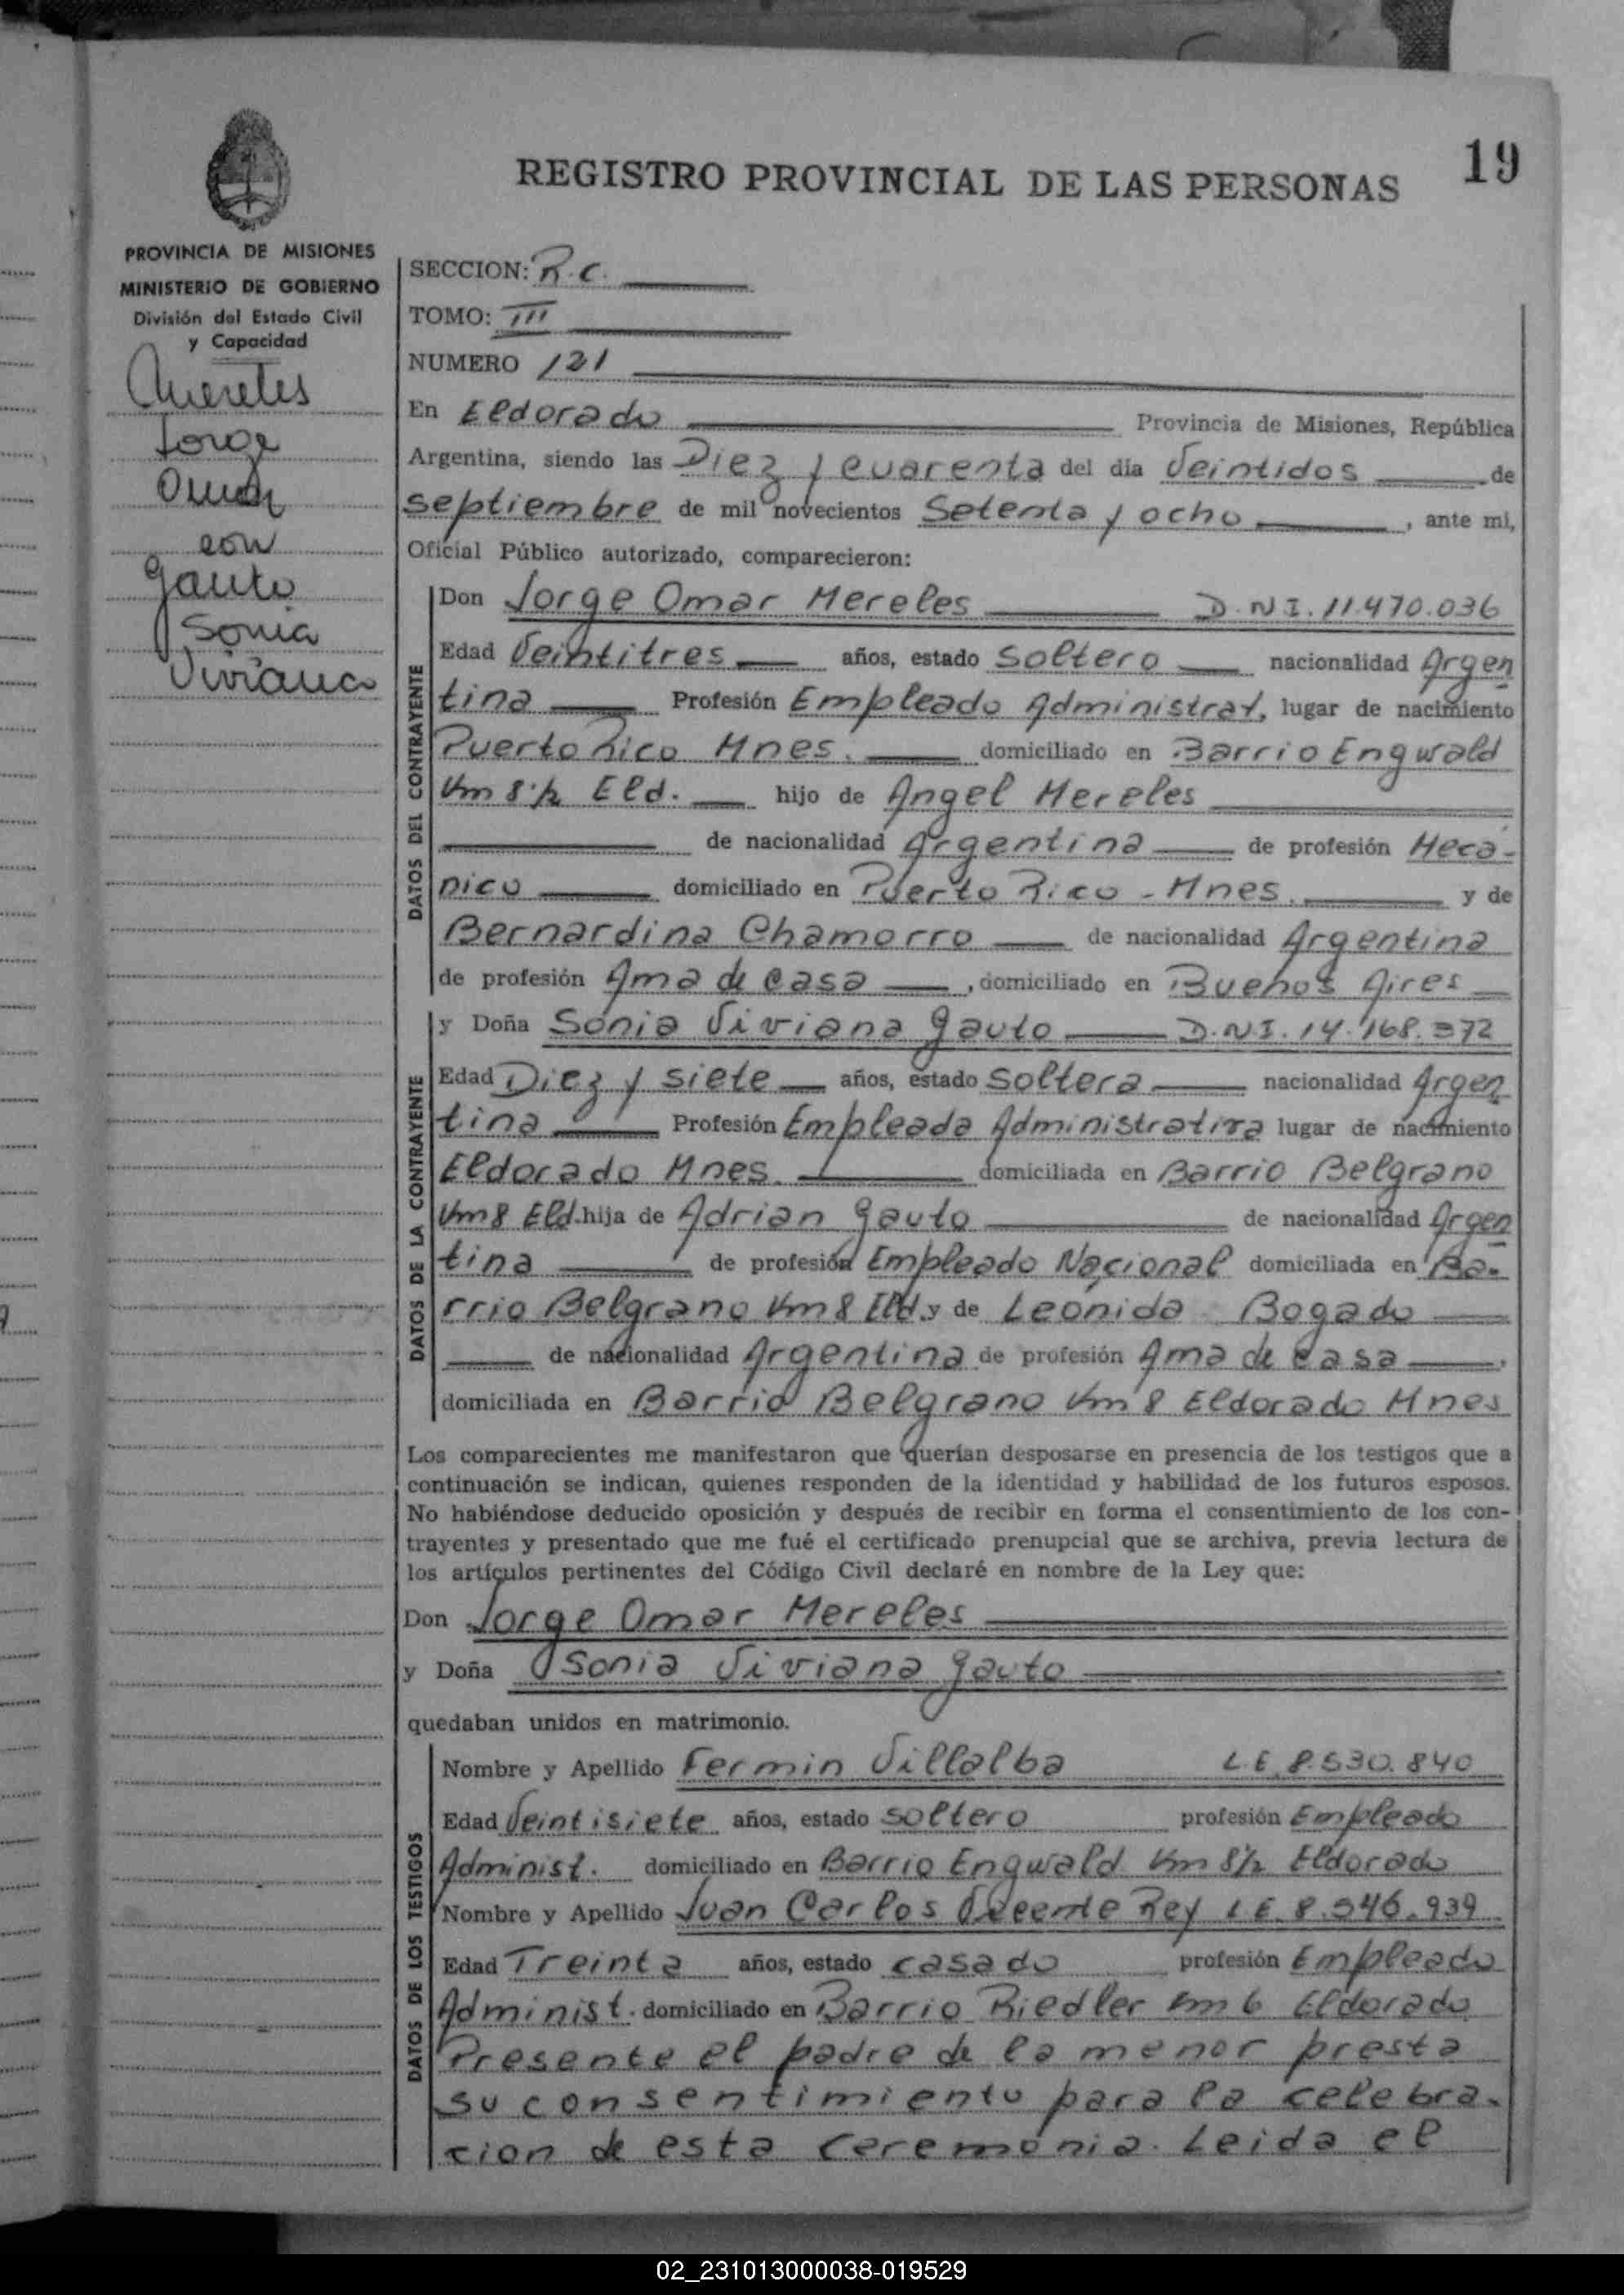 19
REGISTRO PROVINCIAL DE LAS PERSONAS
PROVINCIA DE MISIONES
MINISTERIO DE GOBIERNO
División del Estado Civil
y Capacidad
Mereles
Jorge
Omar
con
Gauto
Sonia
Viviana
SECCION: R.C.
TOMO: III
NUMERO 121
En Eldorado Provincia de Misiones, República
Argentina, siendo las Diez y cuarenta del día Veintidos de
septiembre de mil novecientos Setenta y ocho , ante mi,
Oficial Público autorizado, comparecieron:
DATOS DEL CONTRAYENTE
Don Jorge Omar Mereles D.N.I. 11.470.036
Edad Veintitres años, estado Soltero nacionalidad Argen
tina Profesión Empleado Administrat. lugar de nacimiento
Puerto Rico Mnes. domiciliado en Barrio Engwald
Km 8½ Eld. hijo de Angel Mereles
de nacionalidad Argentina de profesión Mecá-
nico domiciliado en Puerto Rico - Mnes. y de
Bernardina Chamorro de nacionalidad Argentina
de profesión Ama de casa , domiciliado en Buenos Aires
DATOS DE LA CONTRAYENTE
y Doña Sonia Viviana Gauto D.N.I. 14.168.372
Edad Diez y siete años, estado Soltera nacionalidad Argen
tina Profesión Empleada Administrativa lugar de nacimiento
Eldorado Mnes. domiciliada en Barrio Belgrano
Km 8 Eld. hija de Adrian Gauto de nacionalidad Argen
tina de profesión Empleado Nacional domiciliada en Ba-
rrio Belgrano Km 8 Eld. y de Leonida Bogado
de nacionalidad Argentina de profesión Ama de casa ,
domiciliada en Barrio Belgrano Km 8 Eldorado Mnes
Los comparecientes me manifestaron que querían desposarse en presencia de los testigos que a
continuación se indican, quienes responden de la identidad y habilidad de los futuros esposos.
No habiéndose deducido oposición y después de recibir en forma el consentimiento de los con-
trayentes y presentado que me fué el certificado prenupcial que se archiva, previa lectura de
los artículos pertinentes del Código Civil declaré en nombre de la Ley que:
Don Jorge Omar Mereles
y Doña Sonia Viviana Gauto
quedaban unidos en matrimonio.
DATOS DE LOS TESTIGOS
Nombre y Apellido Fermin Villalba L.E. 8.530.840
Edad Veintisiete años, estado soltero profesión Empleado
Administ. domiciliado en Barrio Engwald Km 8½ Eldorado
Nombre y Apellido Juan Carlos Vicente Rey L.E. 8.546.939
Edad Treinta años, estado casado profesión Empleado
Administ. domiciliado en Barrio Riedler Km 6 Eldorado
Presente el padre de la menor presta
su consentimiento para la celebra-
cion de esta ceremonia. Leida el
02_231013000038-019529